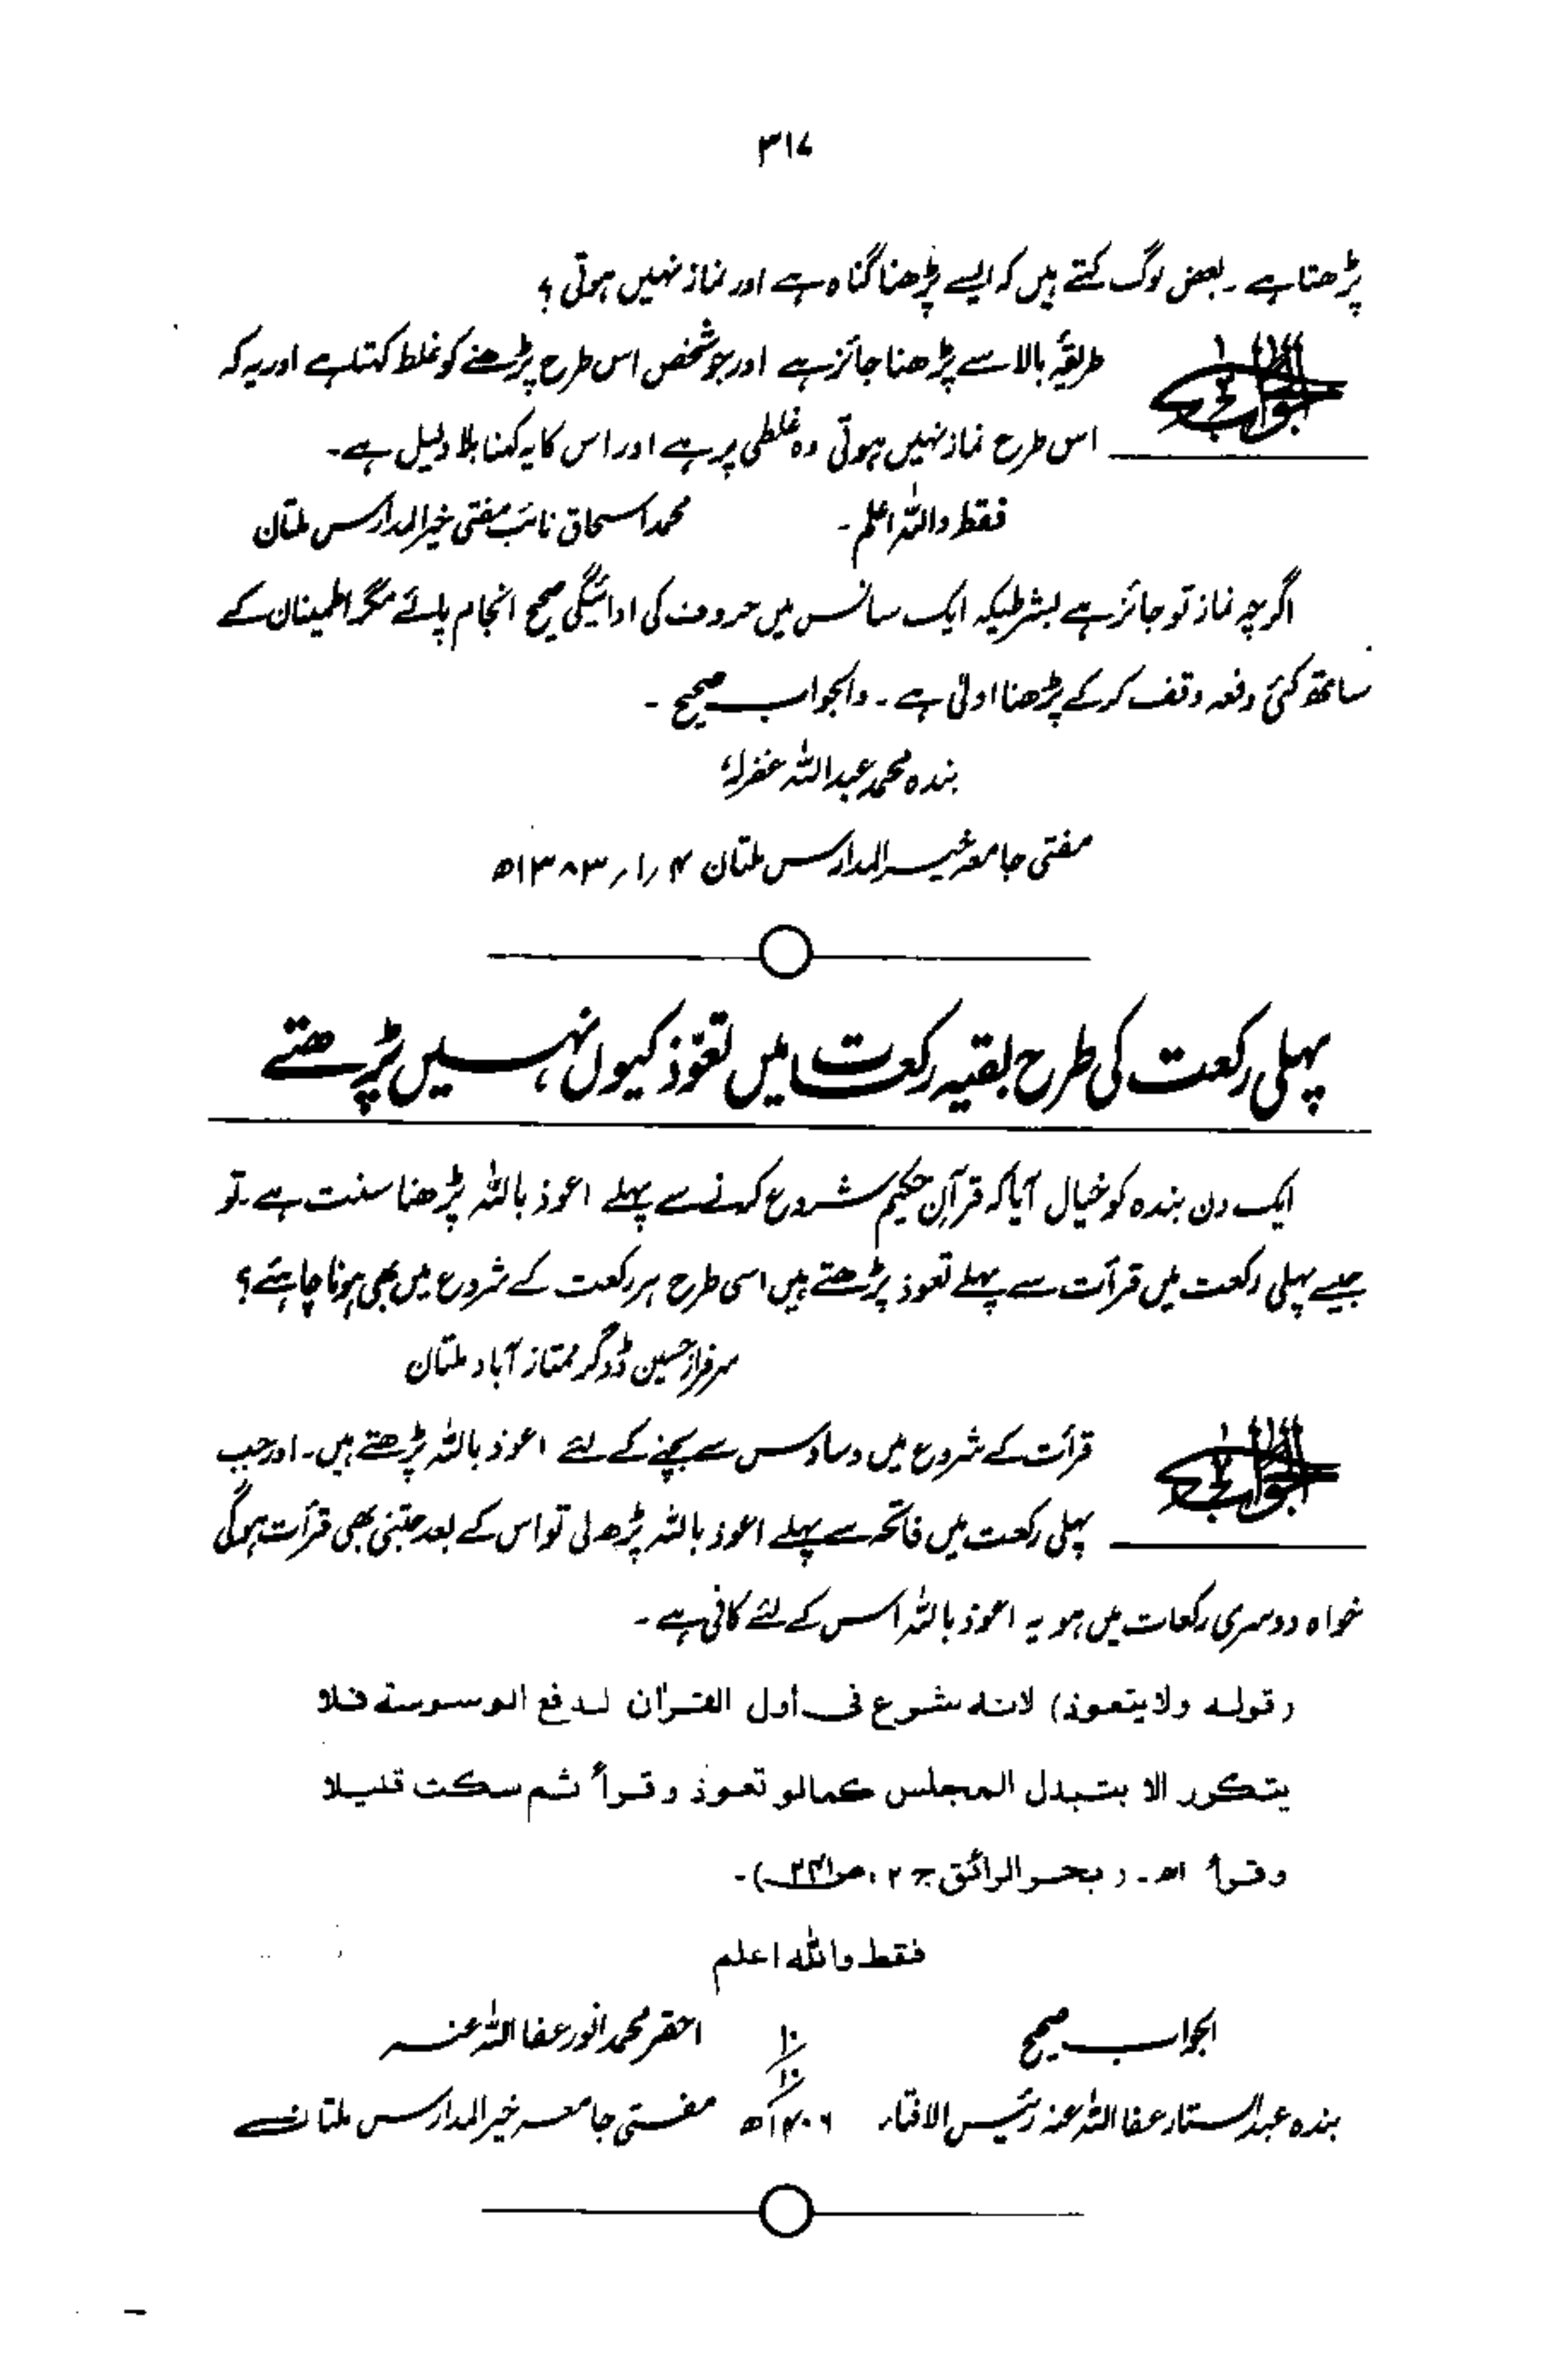 ۳۱۷
پڑھتا ہے ۔ بعض لوگ کہتے ہیں کہ ایسے پڑھنا گناہ ہے اور نماز نہیں ہوتی ؟
الجواب طریقۂ بالا سے پڑھنا جائز ہے اور جو شخص اس طرح پڑھنے کو غلط کہتا ہے اور یہ کہ
اس طرح نماز نہیں ہوتی وہ غلطی پر ہے اور اس کا یہ کہنا بلا دلیل ہے۔
فقط واللہ اعلم۔ محمد اسحاق نائب مفتی خیر المدارس ملتان
اگرچہ نماز تو جائز ہے بشرطیکہ ایک سانس میں حروف کی ادائیگی صحیح انجام پائے مگر اطمینان کے
ساتھ کئی دفعہ وقف کر کے پڑھنا اولیٰ ہے ۔ والجواب صحیح ۔
بندہ محمد عبداللہ غفرلہٗ
مفتی جامعہ خیر المدارس ملتان ۴ ر ۱ ر ۱۳۸۳ھ
پہلی رکعت کی طرح بقیہ رکعت میں تعوّذ کیوں نہیں پڑھتے
ایک دن بندہ کو خیال آیا کہ قرآن حکیم شروع کرنے سے پہلے اعوذ باللہ پڑھنا سنت ہے۔ تو
جیسے پہلی رکعت میں قرأت سے پہلے تعوذ پڑھتے ہیں اسی طرح ہر رکعت کے شروع میں بھی ہونا چاہئے؟
سرفراز حسین ڈوگر ممتاز آباد ملتان
الجواب قرأت کے شروع میں وساوس سے بچنے کے لئے اعوذ باللہ پڑھتے ہیں۔ اور جب
پہلی رکعت میں فاتحہ سے پہلے اعوذ باللہ پڑھ لی تو اس کے بعد جتنی بھی قرأت ہوگی
خواہ دوسری رکعات میں ہو یہ اعوذ باللہ اس کے لئے کافی ہے ۔
(قوله ولا يتعوذ) لانه شرع فى أول القرآن لدفع الوسوسة فلا
يتكرر الا بتبدل المجلس كما لو تعوذ وقرأ ثم سكت قليلا
وقرأ اه ۔ (بحر الرائق ج ۲ ،
فقط واللہ اعلم
الجواب صحیح ۱۰/۱۰ احقر محمد انور عفا اللہ عنہ
بندہ عبدالستار عفا اللہ عنہ رئیس الافتاء ۱۴۰۶ھ مفتی جامعہ خیر المدارس ملتان